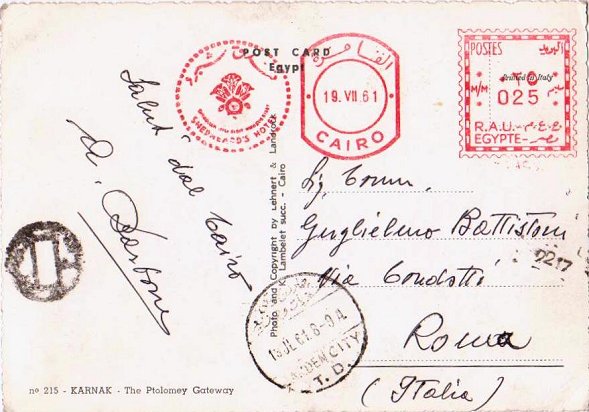 POST CARD
Egypt
فندق شبرد
SHEPHEARD'S HOTEL
القاهرة
19. VII. 61
CAIRO
POSTES
البريد
Printed in Italy
M/M
025
R.A.U.
EGYPTE
Saluti dal Cairo
Sig. Comm.
Guglielmo Battistoni
Via Condotti
Roma
(Italia)
Photo and Copyright by Lehnert & Landrock
K. Lambelet succ. - Cairo
GARDEN CITY
T. D.
nº 215 - KARNAK - The Ptolomey Gateway